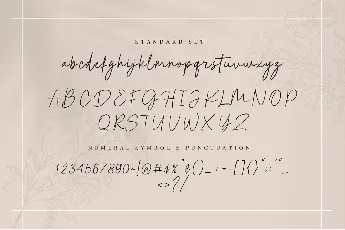 STANDARD SET
abcdefghijklmnopqrstuvwxyz
ABCDEFGHIJKLMNOP
QRSTUVWXYZ
NUMERAL SYMBOL & PUNCTUATION